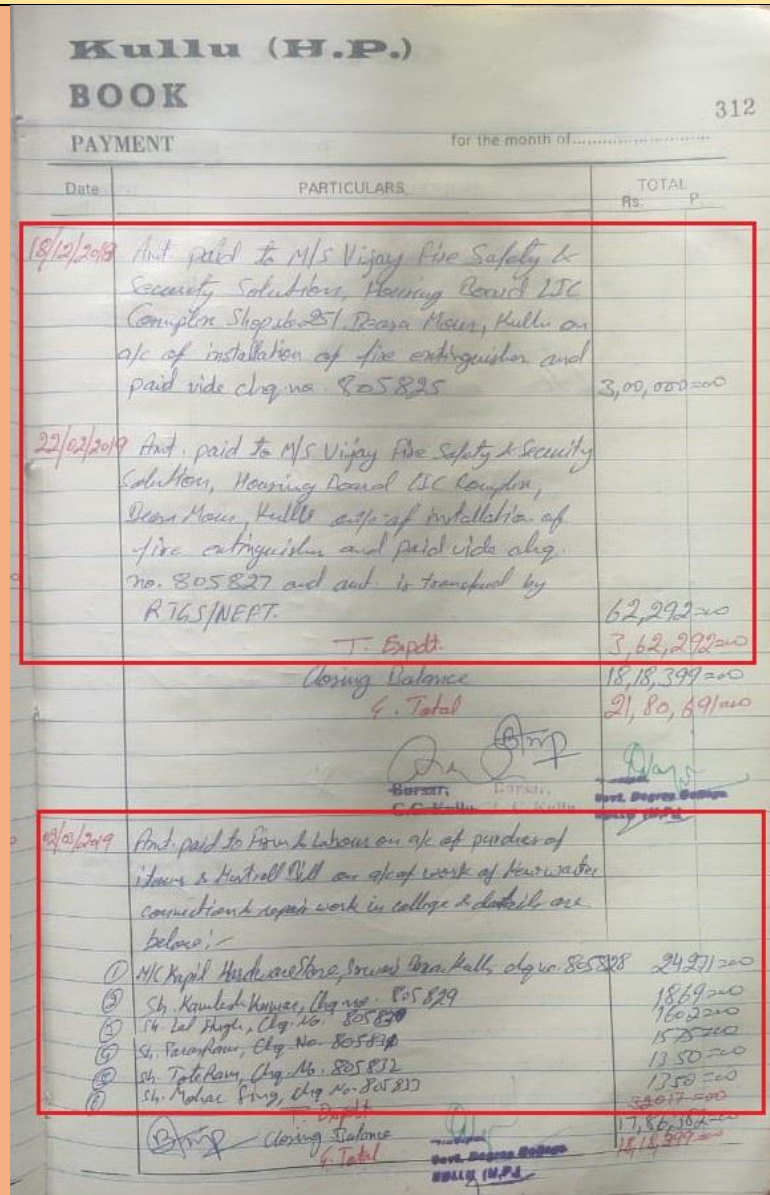 Kullu (H.P.)
BOOK
312
PAYMENT for the month of
Date PARTICULARS TOTAL
Rs. P.
18/12/2018 Amt paid to M/S Vijay Fire Safety &
Security Solution, Housing Board LIC
Complex Shop no 25/ Mour, Kullu on
a/c of installation of fire extinguisher and
paid vide chq no. 805825 3,00,000=00
22/02/2019 Amt. paid to M/S Vijay Fire Safety & Security
Solution, Housing Board LIC Complex,
Mour, Kullu of installation of
fire extinguisher and paid vide chq.
no. 805827 and amt. is transferred by
RTGS/NEFT. 62,292=00
T. Expdt. 3,62,292=00
Closing Balance 18,18,399=00
G. Total 21,80,691=00
Bursar, Bursar,
G.C. Kullu G.C. Kullu
Principal
Govt. Degree College
KULLU (H.P.)
02/03/2019 Amt. paid to Firm & Labour on a/c of purchase of
items & Bill on a/c of work of
connection & repair work in college & details are
below:-
① M/S Kapil Hardware Store, Kullu chq no. 805828 24271=00
② Sh. Kamlesh Kumar, Chq no. 805829 1869=00
③ Sh. Lal Singh, Chq. No. 805830 1602=00
④ Sh. Paras Ram, Chq. No. 805831 1575=00
⑤ Sh. Tote Ram, Chq. No. 805832 1350=00
⑥ Sh. Singh, chq No. 805833 1350=00
T. Expdt 32017=00
Closing Balance 17,86,382=00
G. Total 18,18,399=00
Principal
Govt. Degree College
KULLU (H.P.)